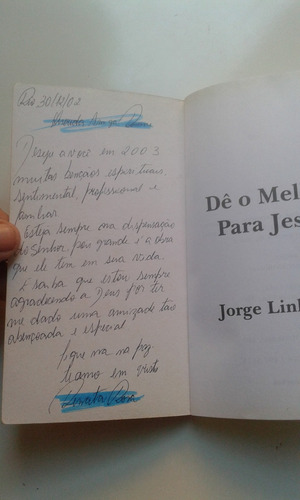 Rio 30/12/02
Desejo a você em 2003
muitas bençãos espirituais,
sentimental, profissional e
familiar.
Esteja sempre na dispensação
do Senhor, pois grande é a obra
que ele tem em sua vida.
E saiba que estou sempre
agradecendo a Deus por ter
me dado uma amizade tão
abençoada e especial.
Fique na paz
Te amo em Cristo
Dê o Mel
Para Jes
Jorge Linl